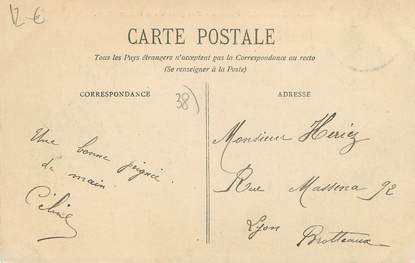 12 €
CARTE POSTALE
Tous les Pays étrangers n'acceptent pas la Correspondance au recto
(Se renseigner à la Poste)
CORRESPONDANCE
38)
ADRESSE
Une bonne poignée
de main
Céline
Monsieur Heriez
Rue Massena 92
Lyon
Brotteaux